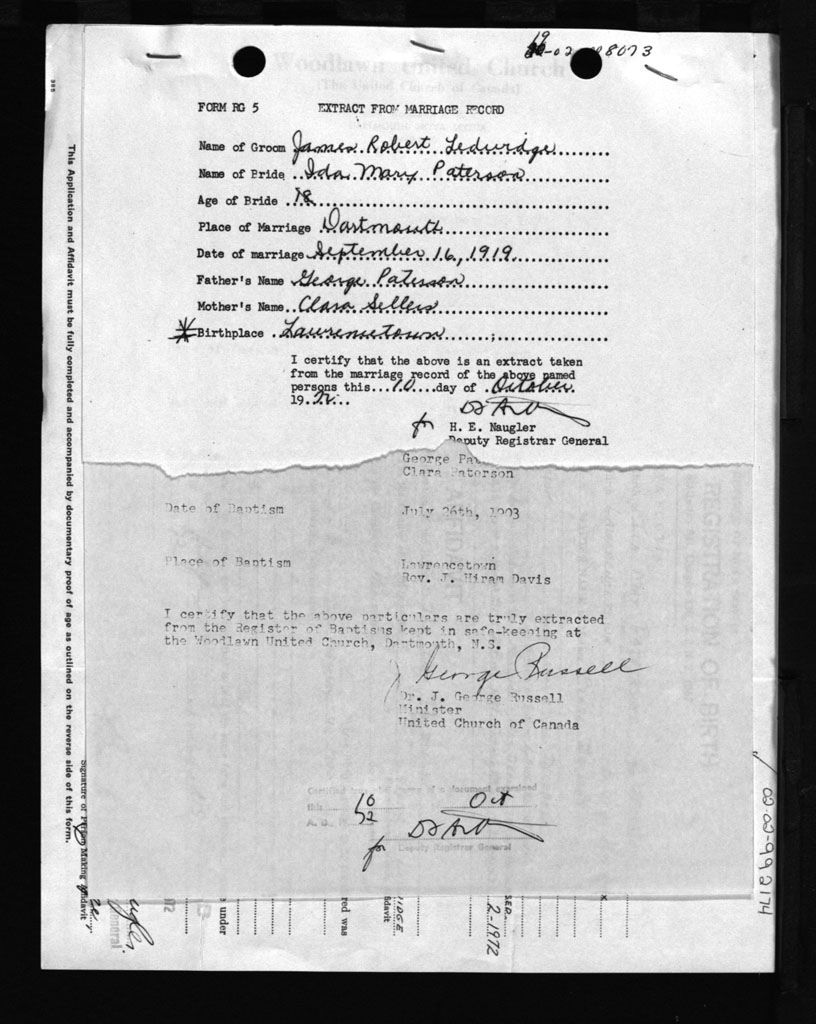 Woodlawn United Church
(The United Church of Canada)
FORM RG 5 EXTRACT FROM MARRIAGE RECORD
Name of Groom James Robert Leduidge
Name of Bride Ida Mary Paterson
Age of Bride 18
Place of Marriage Dartmouth
Date of marriage September 16, 1919
Father's Name George Paterson
Mother's Name Clara Sellers
Birthplace Lawrencetown
I certify that the above is an extract taken
from the marriage record of the above named
persons this 10 day of October
19 72
for H. E. Naugler
Deputy Registrar General
George Pa
Clara Paterson
Date of Baptism July 26th, 1903
Place of Baptism Lawrencetown
Rev. J. Hiram Davis
I certify that the above particulars are truly extracted
from the Register of Baptisms kept in safe-keeping at
the Woodlawn United Church, Dartmouth, N.S.
George Russell
Dr. J. George Russell
Minister
United Church of Canada
10 Oct
72
for Deputy Registrar General
This Application and Affidavit must be fully completed and accompanied by documentary proof of age as outlined on the reverse side of this form.
Making Affidavit
under
red was
fidavit
2-1972
02-02-992174